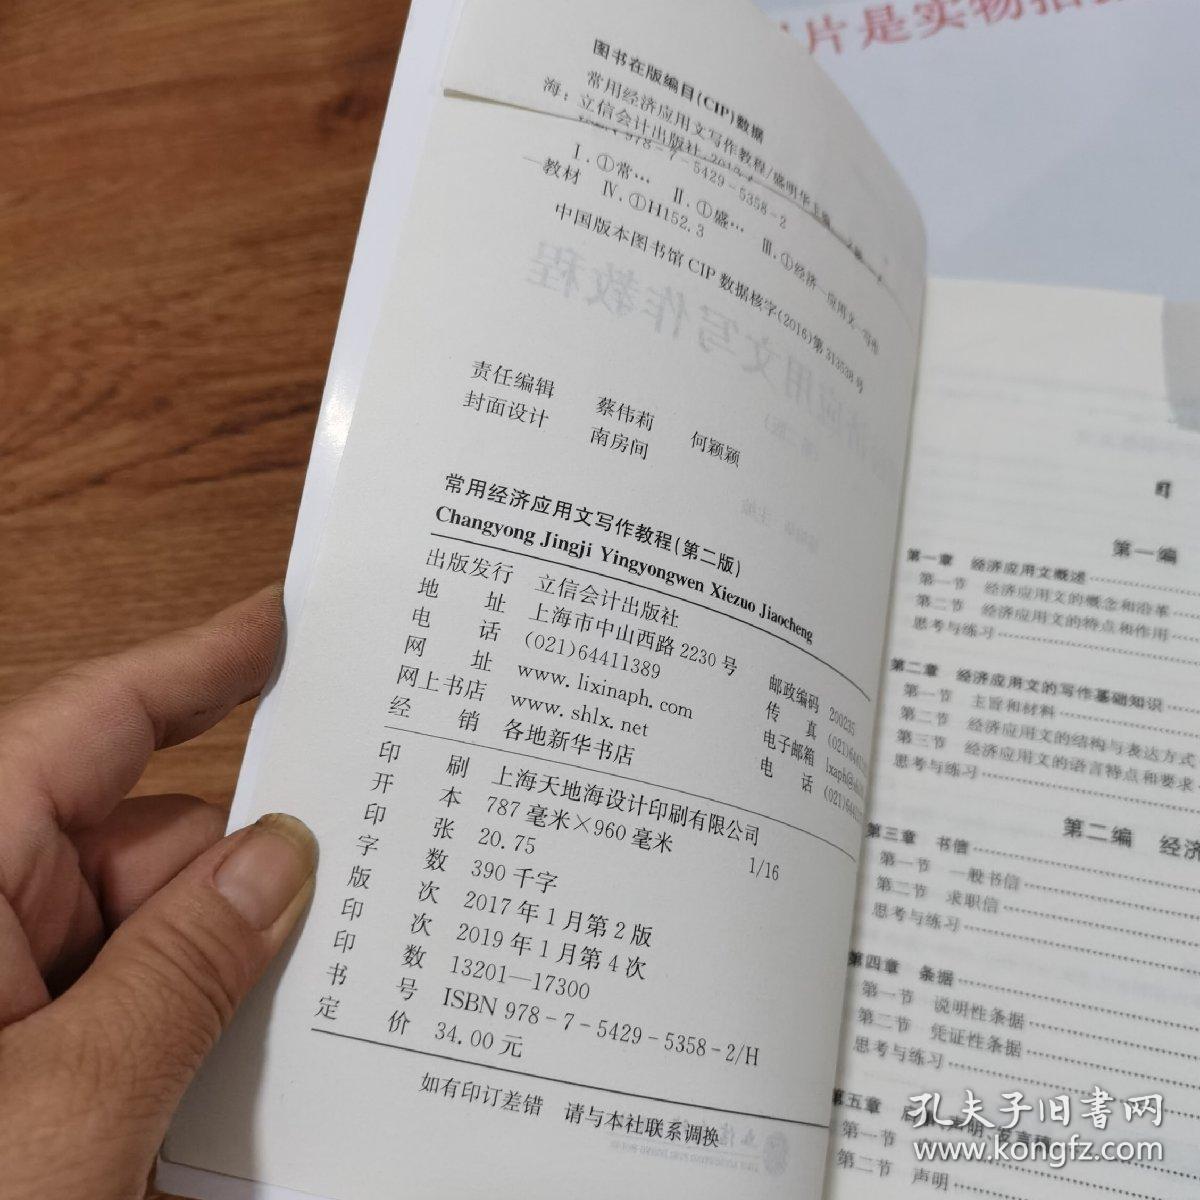 片是实物拍
图书在版编目(CIP)数据
常用经济应用文写作教程/盛明华主编
海：立信会计出版社,2019
978-7-5429-5358-2
Ⅰ.①常… Ⅱ.①盛… Ⅲ.①经济—应用文—写作
—教材 Ⅳ.①H152.3
中国版本图书馆CIP数据核字(2016)第313538号
责任编辑 蔡伟莉 何颖颖
封面设计 南房间
常用经济应用文写作教程(第二版)
Changyong Jingji Yingyongwen Xiezuo Jiaocheng
出版发行 立信会计出版社
地 址 上海市中山西路2230号 邮政编码 200235
电 话 (021)64411389 传 真 (021)6441
网 址 www.lixinaph.com 电子邮箱 lxaph@sh
网上书店 www.shlx.net 电 话 (021)6441
经 销 各地新华书店
印 刷 上海天地海设计印刷有限公司
开 本 787毫米×960毫米 1/16
印 张 20.75
字 数 390千字
版 次 2017年1月第2版
印 次 2019年1月第4次
印 数 13201—17300
书 号 ISBN 978-7-5429-5358-2/H
定 价 34.00元
如有印订差错 请与本社联系调换
第一编
第一章 经济应用文概述
第一节 经济应用文的概念和沿革
第二节 经济应用文的特点和作用
思考与练习
第二章 经济应用文的写作基础知识
第一节 主旨和材料
第二节 经济应用文的结构与表达方式
第三节 经济应用文的语言特点和要求
思考与练习
第二编 经济
第三章 书信
第一节 一般书信
第二节 求职信
思考与练习
第四章 条据
第一节 说明性条据
第二节 凭证性条据
思考与练习
第五章
第一节
第二节 声明
孔夫子旧书网
www.kongfz.com